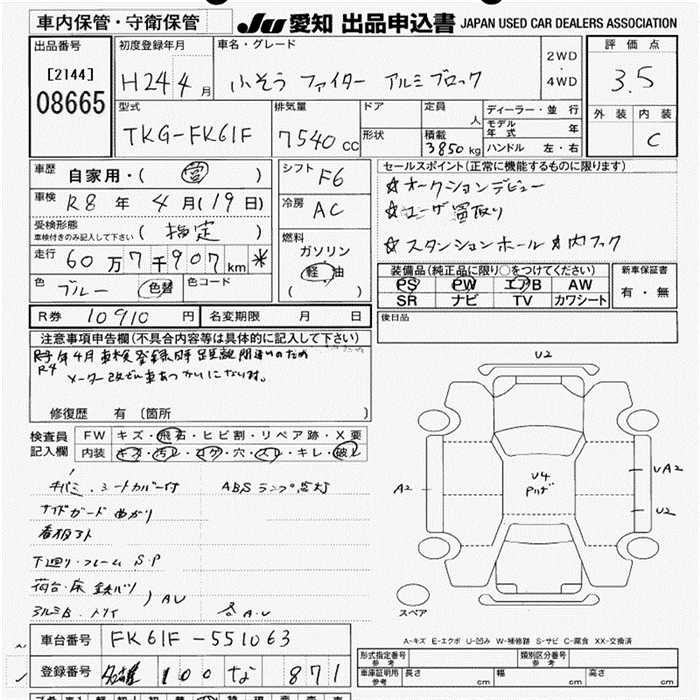 車内保管・守衛保管 JU 愛知 出品申込書 JAPAN USED CAR DEALERS ASSOCIATION
出品番号 初度登録年月 車名・グレード 2WD ・ 4WD 評価点
[2144]
08665 H24 4月 ふそう ファイター アルミブロック 3.5
型式 排気量 ドア 定員 人 ディーラー・並行 外装 内装
TKG-FK61F 7540cc 形状 積載 3850kg モデル年式 年 ハンドル 左・右 C
車歴 自家用・( 営 ) シフト F6 セールスポイント(正常に機能するものに限ります)
車検 R8年 4月(19日) 冷房 AC ☆オークションデビュー
☆ユーザ買取り
受検形態 車検付きのみ記入して下さい ( 指定 ) 燃料 ☆スタンションホール ☆内フック
走行 60万7千907km * ガソリン
軽油
( )
装備品(純正品に限り○をつけてください) 新車保証書
色 ブルー 色替 色コード PS PW エアB AW 有・無
SR ナビ TV カワシート
R券 10910円 名変期限 月 日 後日品
注意事項申告欄(不具合内容等は具体的に記入して下さい)
年4月車検 登録時 走距離 間違いのため
R4
メーター改ざん車あつかいになります。
修復歴 有 〔箇所 〕
検査員記入欄 FW キズ・飛石・ヒビ割・リペア跡・X要
内装 キズ・汚レ・コゲ・穴・スレ・キレ・破レ
シートカバー付 ABSランプ点灯
サイドガード まがり
下廻り・フレーム S・P
荷台・床 鉄板
アルミB
AU
各A・U
U2
A2
U4
UA2
U2
スペア
A-キズ E-エクボ U-凹み W-補修跡 S-サビ C-腐食 XX-交換済
車台番号 FK61F-551063 形式指定番号 参考 類別区分番号 参考
登録番号 名古屋 100 な 871 車庫証明用 参考 長さ cm 幅 cm 高さ cm